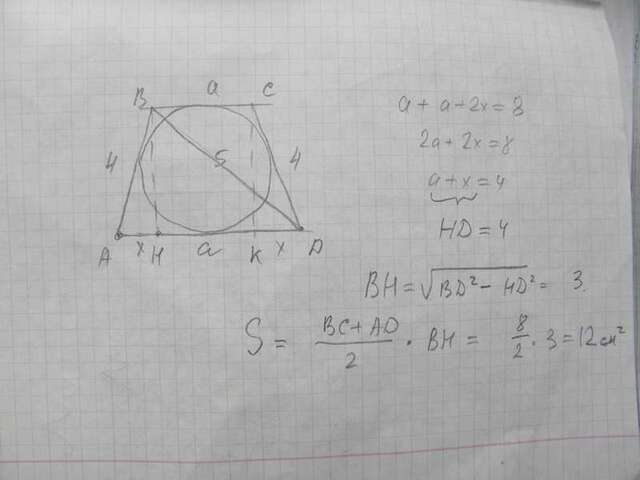 a
B C
4 5 4
A x H a K x D
a + a + 2x = 8
2a + 2x = 8
a + x = 4
HD = 4
BH = √BD² − HD² = 3
S = BC + AD / 2 · BH = 8 / 2 · 3 = 12 см²